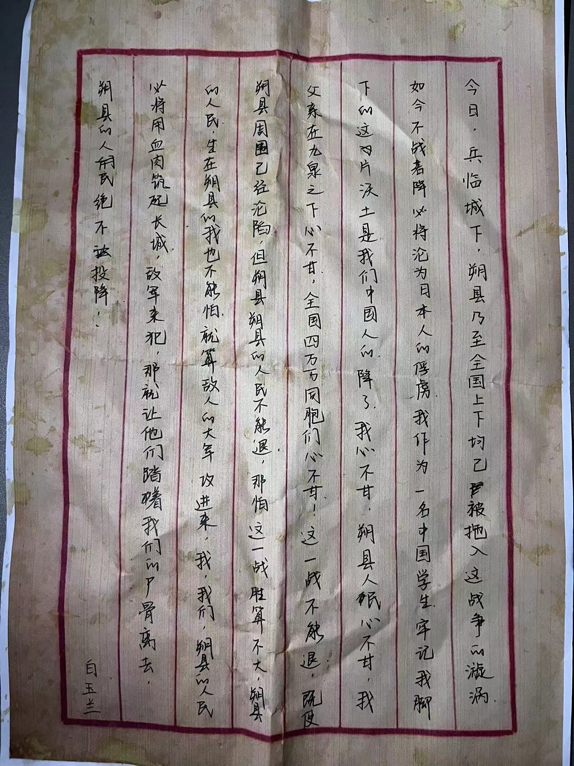 今日，兵临城下，朔县乃至全国上下均已被拖入这战争的漩涡
如今不战若降必将沦为日本人的俘虏我作为一名中国学生牢记我脚
下的这片沃土是我们中国人的降了我心不甘，朔县人民心不甘，我
父亲在九泉之下心不甘，全国四万万同胞们心不甘！这一战不能退，既使
朔县周围已经沦陷，但朔县朔县的人民不能退，那怕这一战胜算不大，朔县
的人民，生在朔县的我也不能怕，就算敌人的大军攻进来，我，我们，朔县的人民
必将用血肉筑起长城，敌军来犯，那就让他们踏着我们的尸骨离去，
朔县的人民绝不投降！
白玉兰